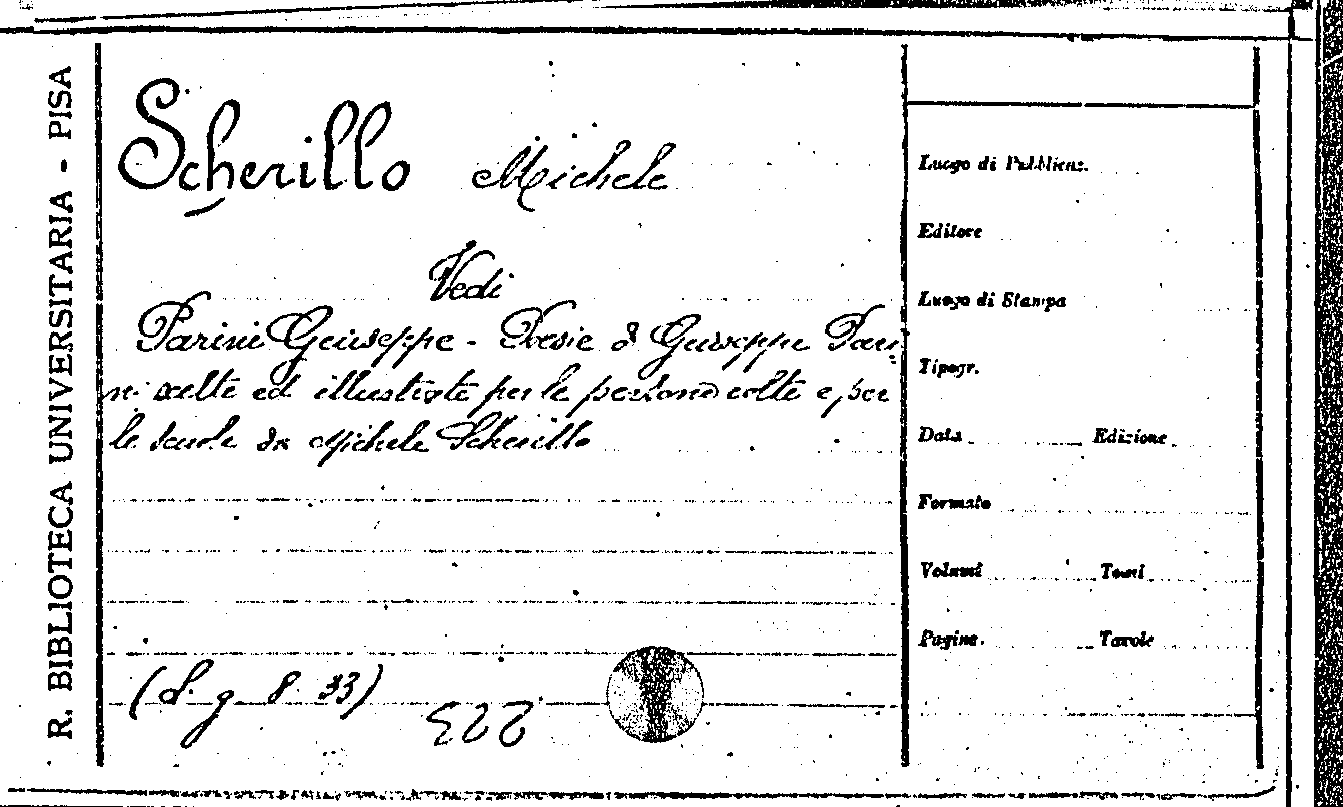 R. BIBLIOTECA UNIVERSITARIA - PISA
Scherillo Michele
Vedi
Parini Giuseppe - Poesie di Giuseppe Pari-
ni scelte ed illustrate per le persone colte e per
le scuole da Michele Scherillo
(d. g. 8. 33)
Luogo di Pubblicaz.
Editore
Luogo di Stampa
Tipogr.
Data Edizione
Formato
Volumi Tomi
Pagine. Tavole